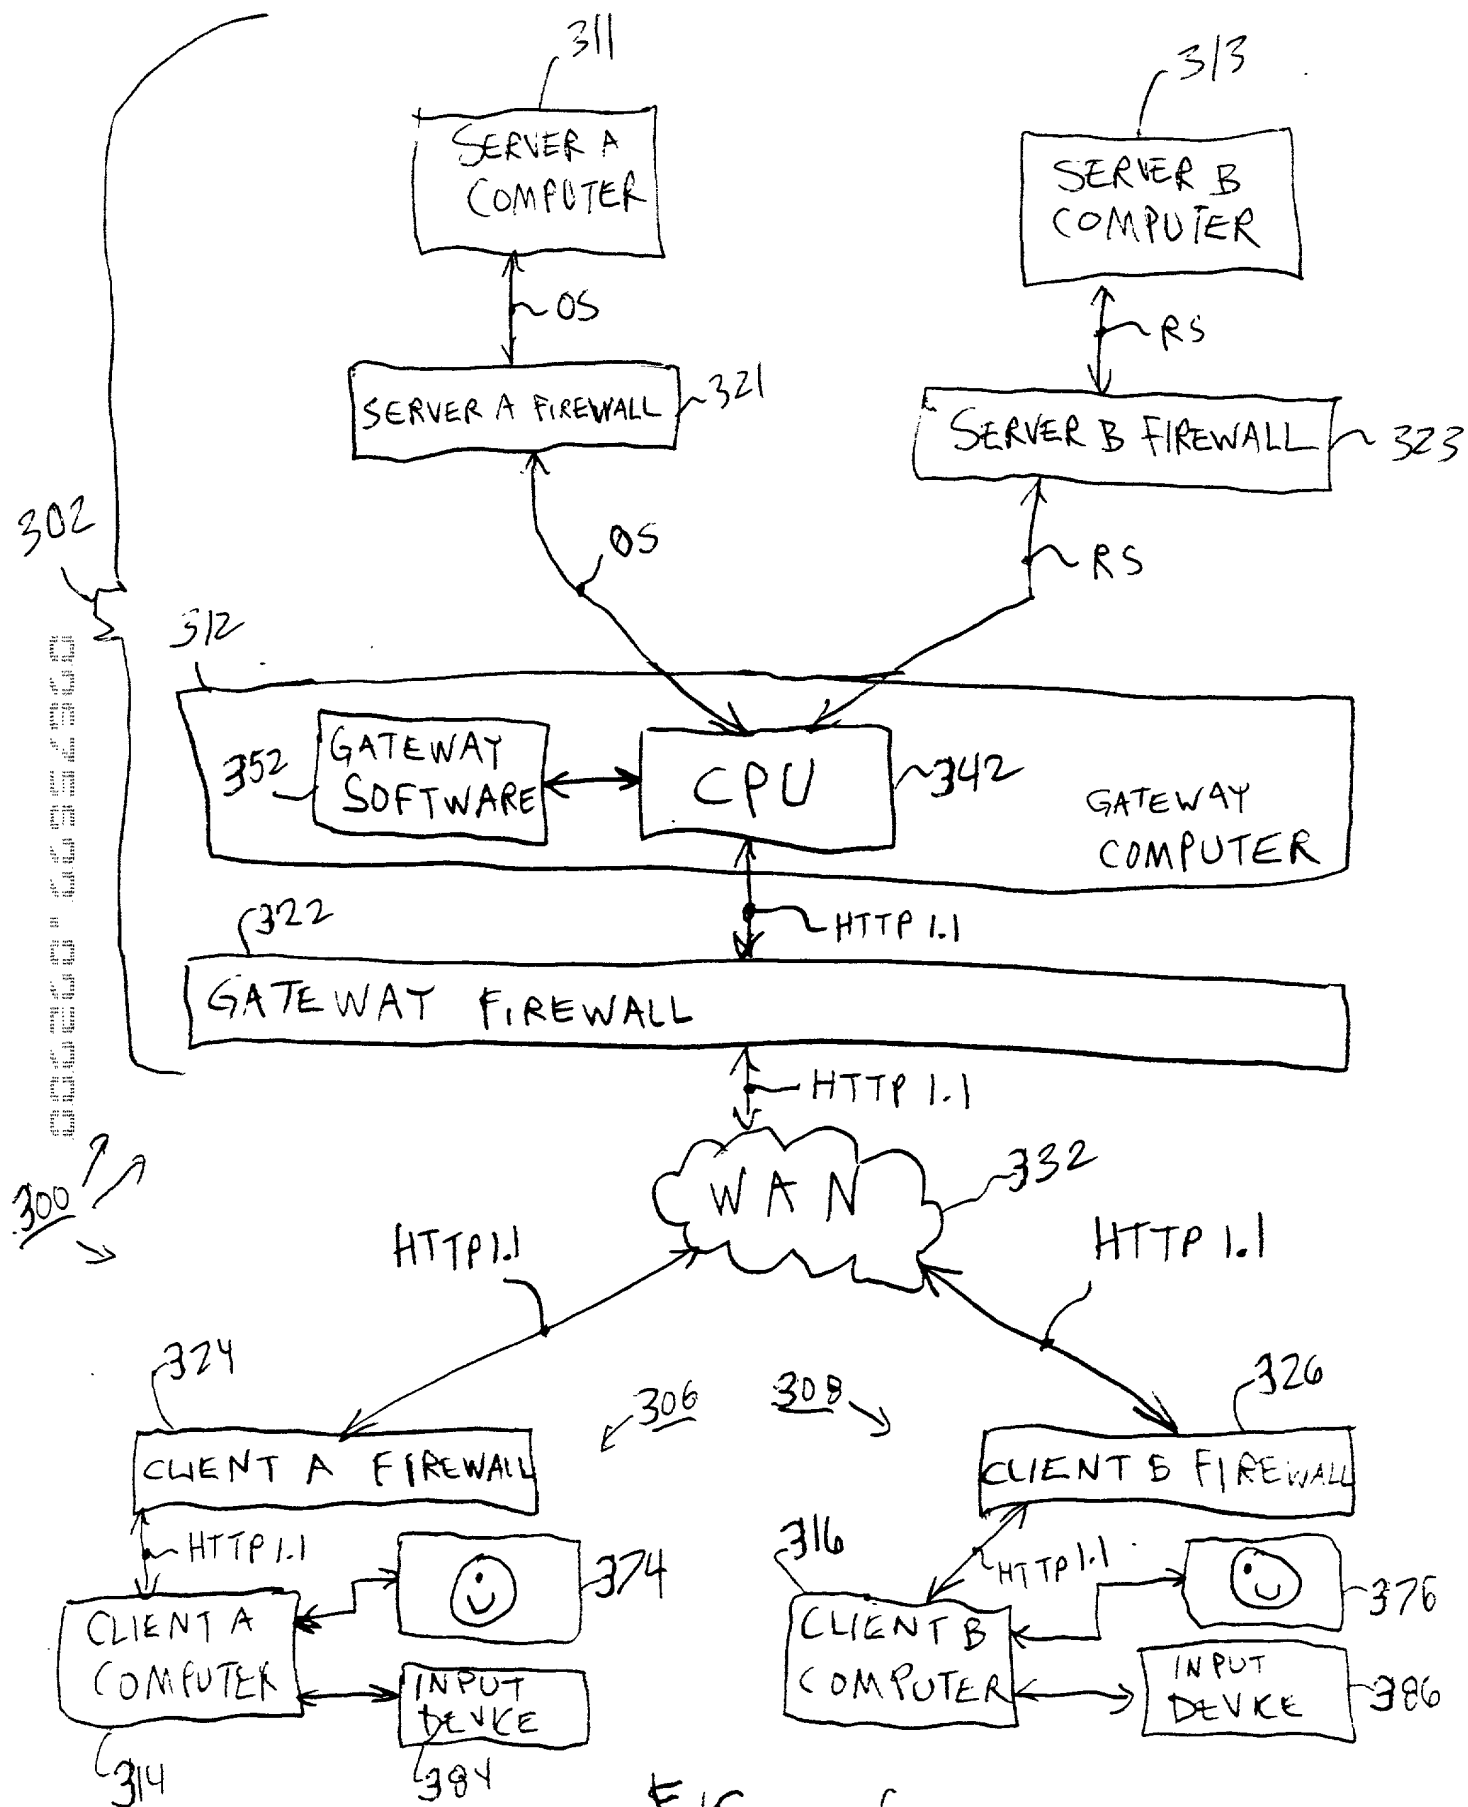 311
313
SERVER A
COMPUTER
SERVER B
COMPUTER
OS
RS
SERVER A FIREWALL
321
SERVER B FIREWALL
323
302
OS
RS
312
352
GATEWAY
SOFTWARE
CPU
342
GATEWAY
COMPUTER
322
HTTP 1.1
GATEWAY FIREWALL
HTTP 1.1
WAN
332
300
HTTP 1.1
HTTP 1.1
324
306
308
326
CLIENT A FIREWALL
CLIENT B FIREWALL
HTTP 1.1
374
316
HTTP 1.1
376
CLIENT A
COMPUTER
CLIENT B
COMPUTER
INPUT
DEVICE
INPUT
DEVICE
386
314
384